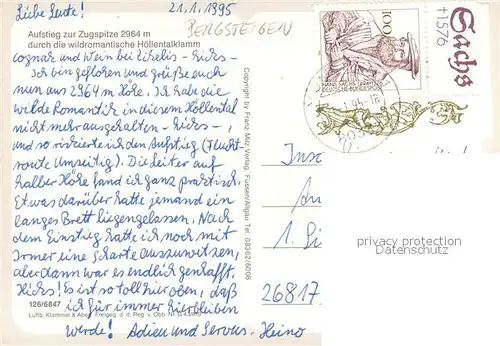 Liebe Leute!
21.1.1995
BERGSTEIGEN
Aufstieg zur Zugspitze 2964 m
durch die wildromantische Höllentalklamm
cognak und Wein bei - hicks -
- Ich bin geflohen und grüße euch
nun aus 2964 m Höhe. Ich habe die
wilde Romantik in diesem Höllental
nicht mehr ausgehalten - hicks -,
und so riskierte ich den Aufstieg (Flucht-
route Umseitig). Die Leiter auf
halber Höhe fand ich ganz praktisch.
Etwas darüber hatte jemand ein
langes Brett liegengelassen. Nach
dem Einstieg hatte ich noch mit
einer eine Scharte auszuwetzen,
aber dann war es endlich geschafft.
Hicks! Es ist so toll hier oben, daß
ich für immer hierbleiben
werde! Adieu und Servus. Heino
126/6847
Luftb. Klammet & Aberl, Freigeg. d. d. Reg. v. Obb. Nr.
Copyright by Franz Milz Verlag, Füssen/Allgäu Tel. 08362/6098
100
HANS SACHS
DEUTSCHE BUNDESPOST
Sachs
†1576
An
1. 
26817
privacy protection
Datenschutz